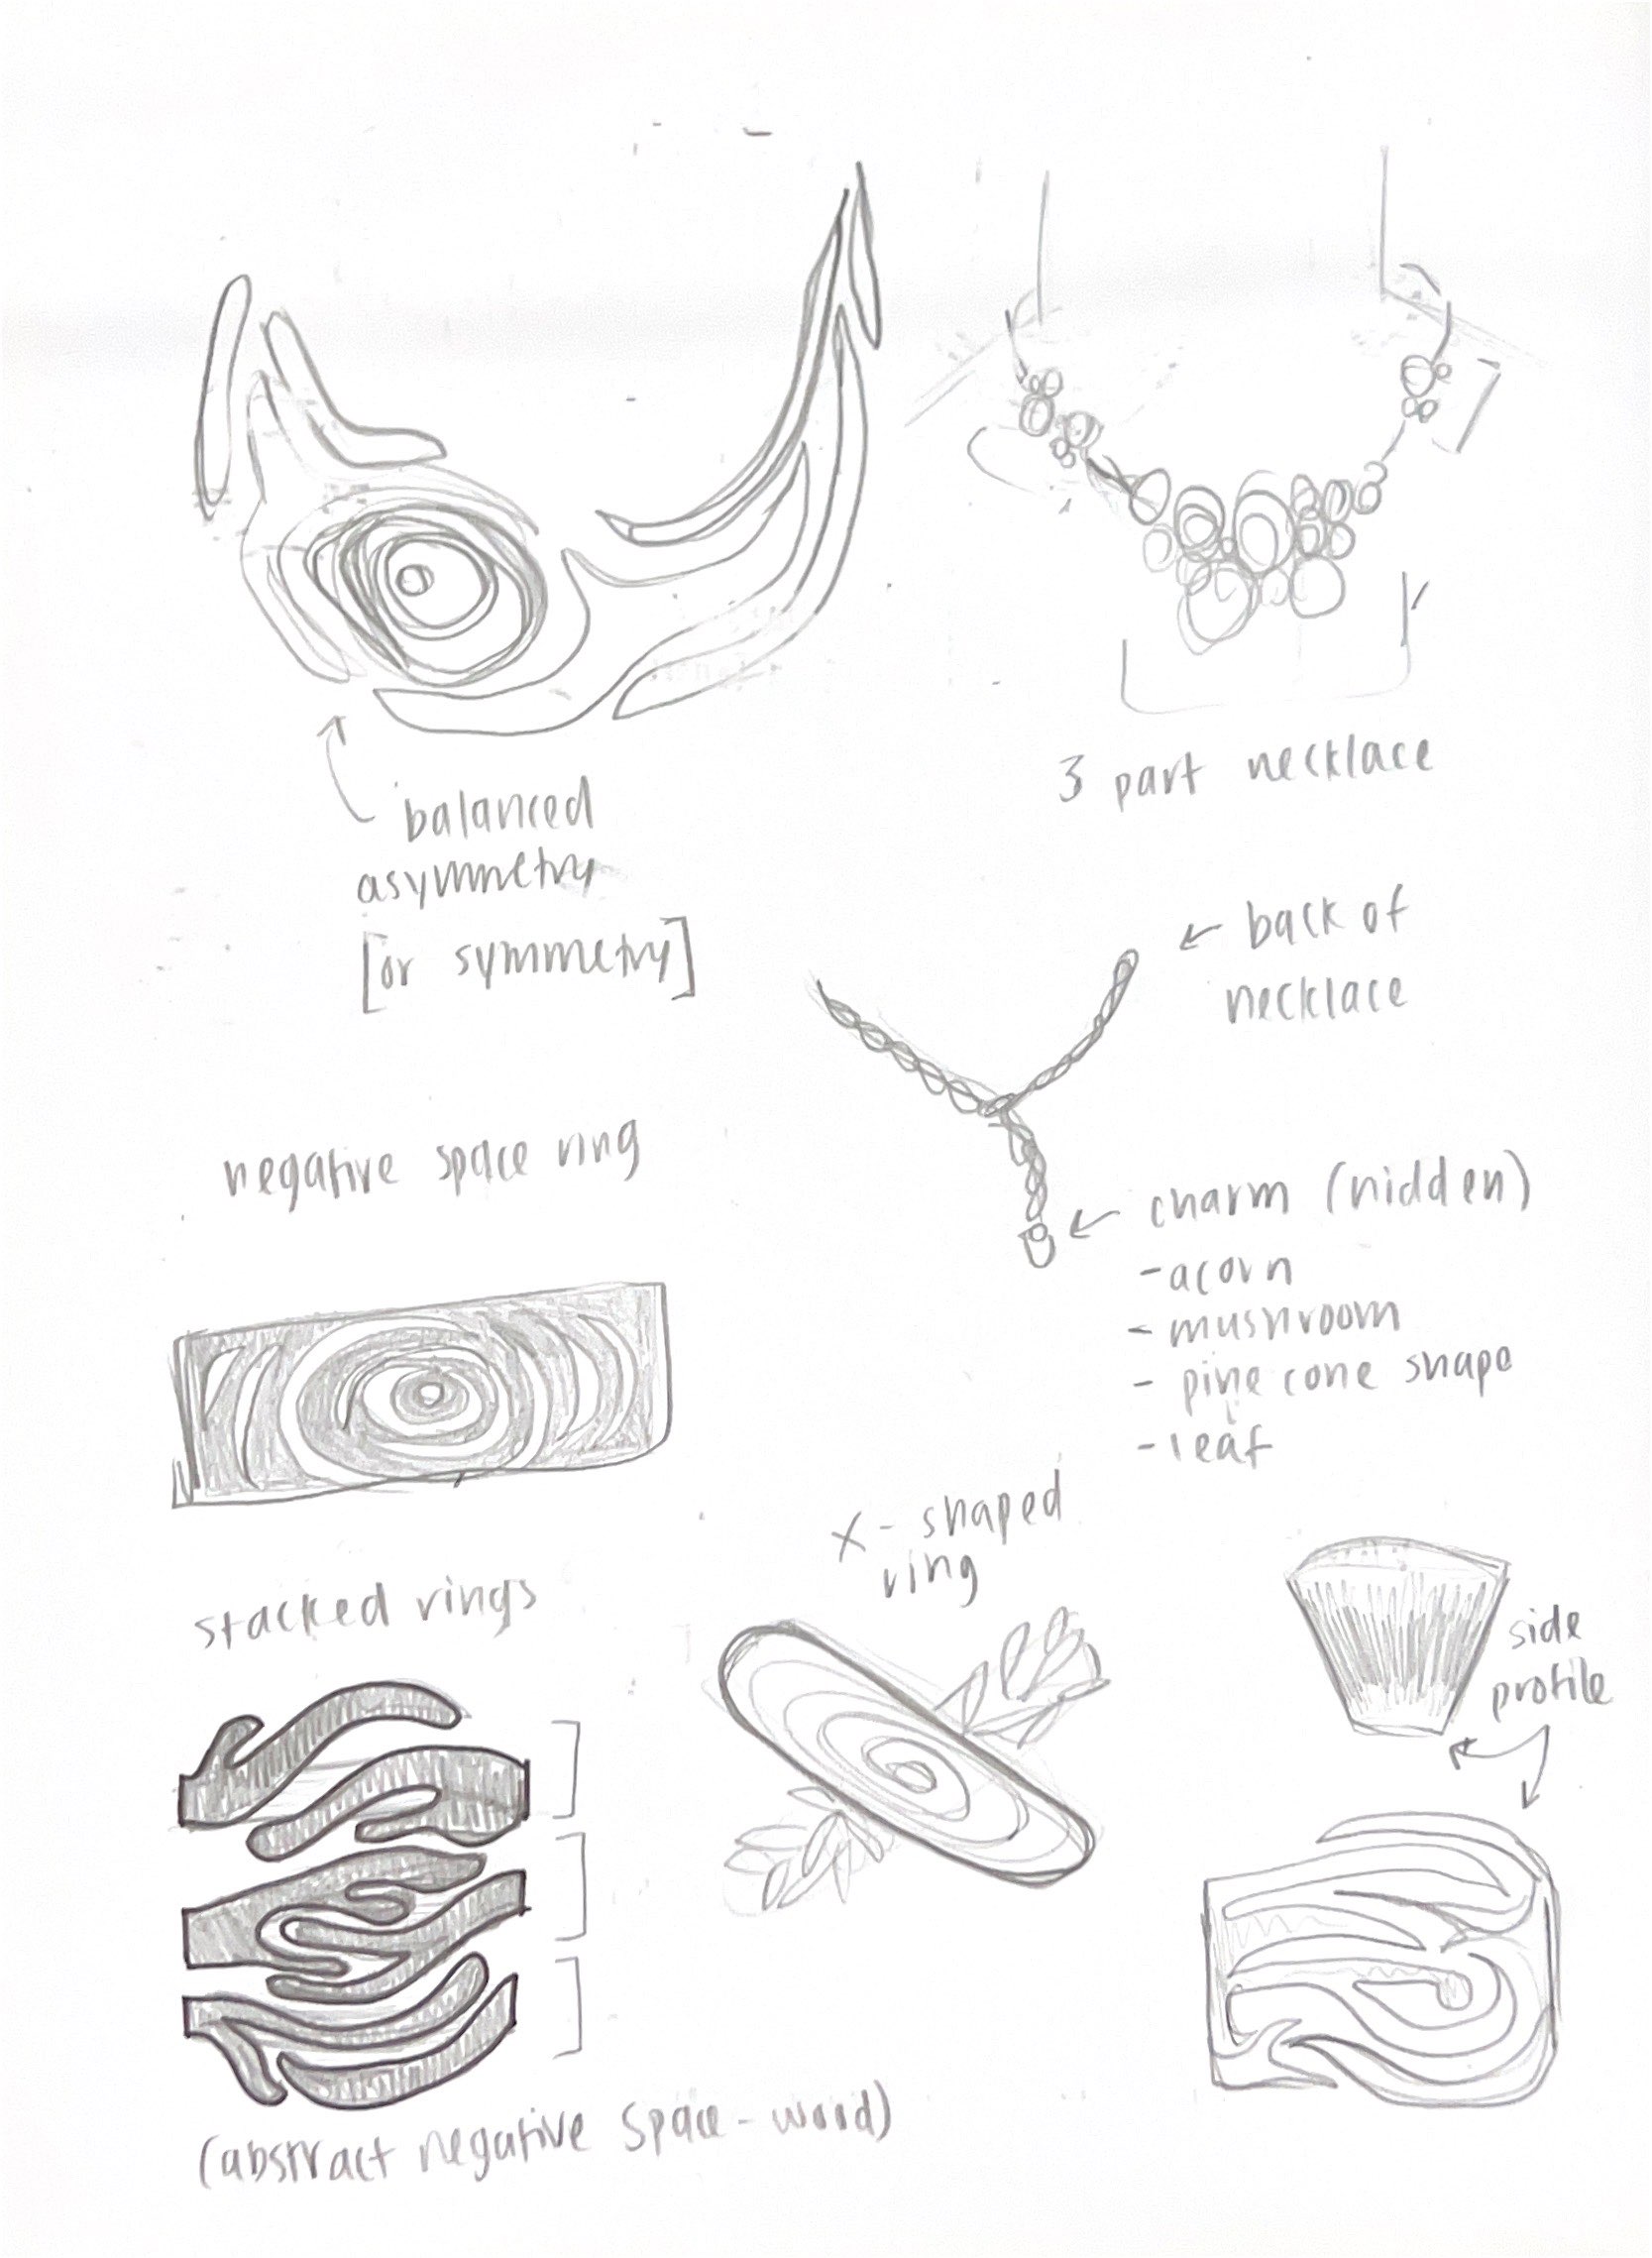 balanced
asymmetry
[or symmetry]
3 part necklace
← back of
necklace
negative space ring
← charm (hidden)
- acorn
- mushroom
- pine cone shape
- leaf
stacked rings
X - shaped
ring
side
profile
(abstract negative space - wood)